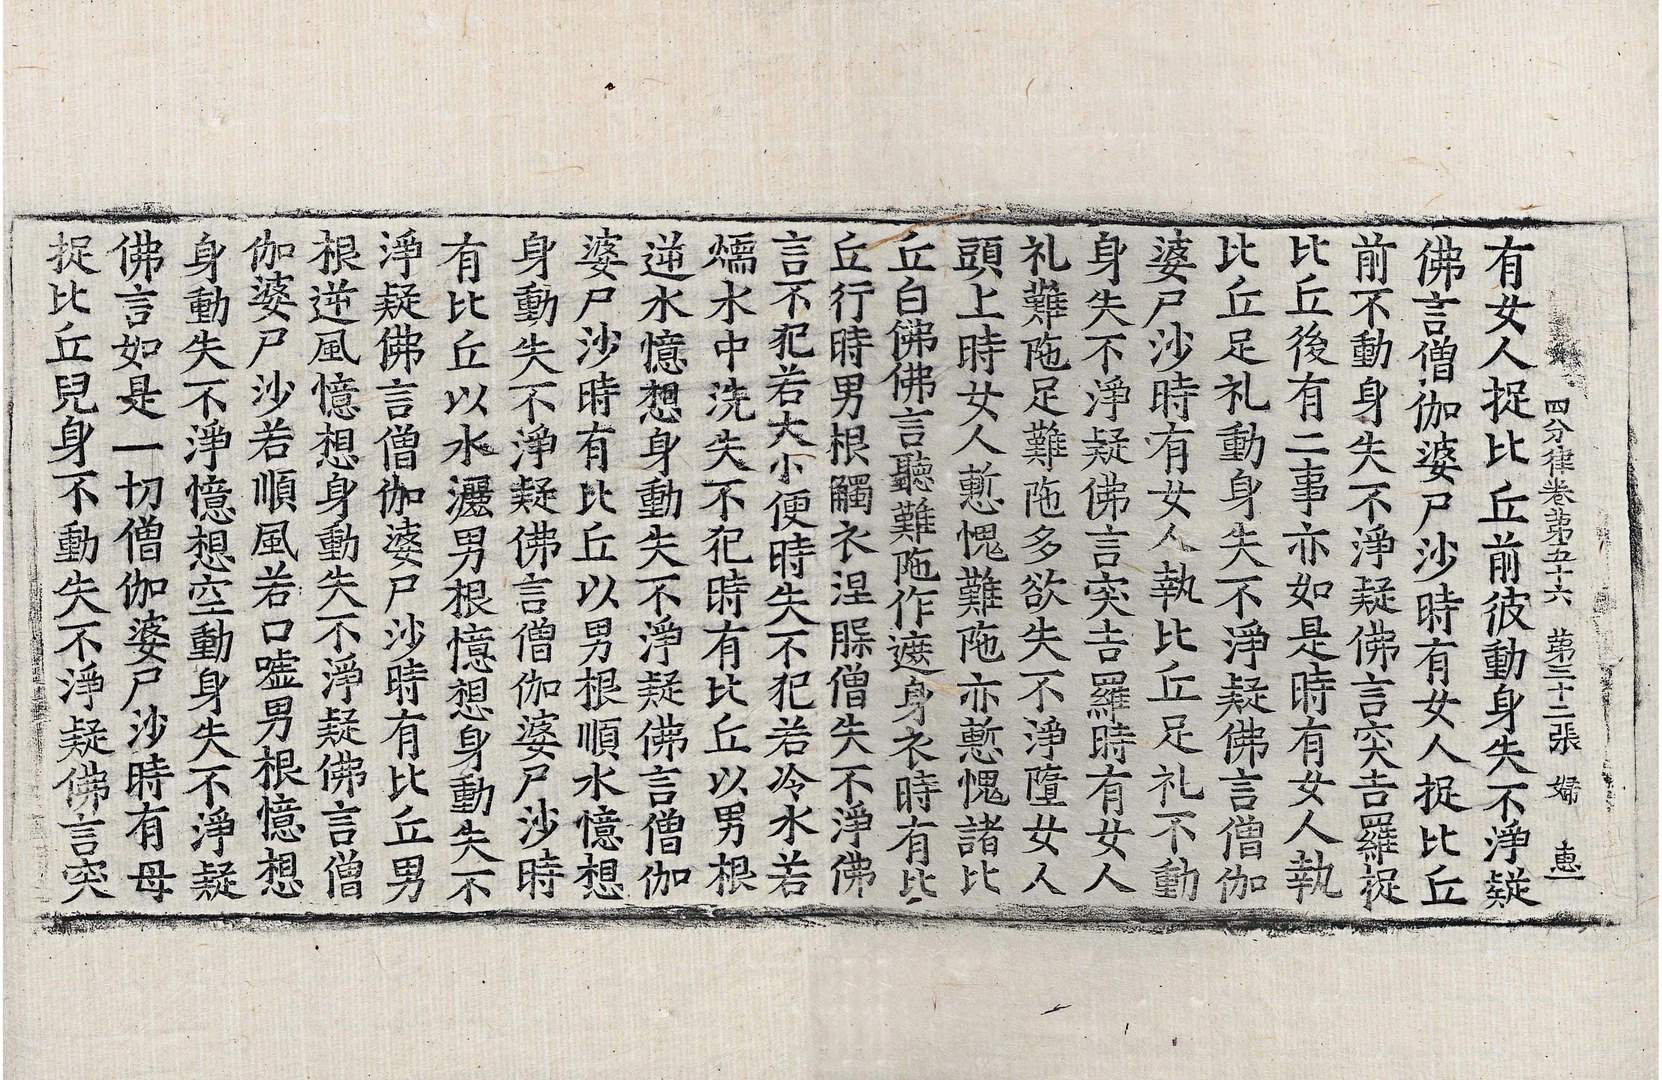 四分律卷第五十六　第三十二張　婦　惠
有女人捉比丘前彼動身失不淨疑
佛言僧伽婆尸沙時有女人捉比丘
前不動身失不淨疑佛言突吉羅捉
比丘後有二事亦如是時有女人執
比丘足礼動身失不淨疑佛言僧伽
婆尸沙時有女人執比丘足礼不動
身失不淨疑佛言突吉羅時有女人
礼難陁足難陁多欲失不淨墮女人
頭上時女人慙愧難陁亦慙愧諸比
丘白佛佛言聽難陁作遮身衣時有比
丘行時男根觸衣涅䐡僧失不淨佛
言不犯若大小便時失不犯若冷水若
煗水中洗失不犯時有比丘以男根
逆水憶想身動失不淨疑佛言僧伽
婆尸沙時有比丘以男根順水憶想
身動失不淨疑佛言僧伽婆尸沙時
有比丘以水灑男根憶想身動失不
淨疑佛言僧伽婆尸沙時有比丘男
根逆風憶想身動失不淨疑佛言僧
伽婆尸沙若順風若口嘘男根憶想
身動失不淨憶想空動身失不淨疑
佛言如是一切僧伽婆尸沙時有母
捉比丘兒身不動失不淨疑佛言突